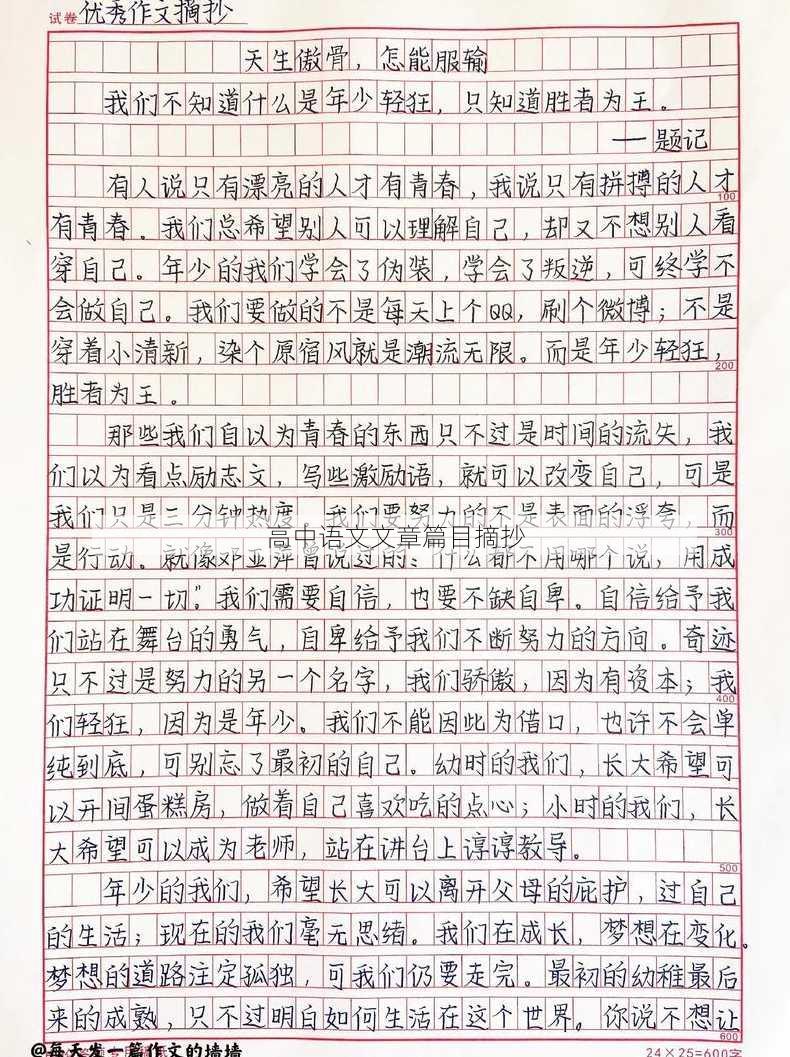 试卷 优秀作文摘抄
天生傲骨，怎能服输
我们不知道什么是年少轻狂，只知道胜者为王。
——题记
有人说只有漂亮的人才有青春，我说只有拼搏的人才
100
有青春。我们总希望别人可以理解自己，却又不想别人看
穿自己。年少的我们学会了伪装，学会了叛逆，可终学不
会做自己。我们要做的不是每天上个QQ，刷个微博；不是
穿着小清新，染个原宿风就是潮流无限。而是年少轻狂，
200
胜者为王。
那些我们自以为青春的东西只不过是时间的流失，我
们以为看点励志文，写些激励语，就可以改变自己，可是
我们只是三分钟热度。我们要努力的不是表面的浮夸，而
300
高中语文文章篇目摘抄
是行动。就像邓亚萍曾说过的：什么都不用哪个说，用成
功证明一切”。我们需要自信，也要不缺自卑。自信给予我
们站在舞台的勇气，自卑给予我们不断努力的方向。奇迹
只不过是努力的另一个名字，我们骄傲，因为有资本；我
400
们轻狂，因为是年少。我们不能因此为借口，也许不会单
纯到底，可别忘了最初的自己。幼时的我们，长大希望可
以开间蛋糕房，做着自己喜欢吃的点心；小时的我们，长
大希望可以成为老师，站在讲台上谆谆教导。
500
年少的我们，希望长大可以离开父母的庇护，过自己
的生活；现在的我们毫无思绪。我们在成长，梦想在变化。
梦想的道路注定孤独，可我们仍要走完。最初的幼稚最后
来的成熟，只不过明白如何生活在这个世界。你说不想让
600
@每天发一篇作文的墙墙
24×25=600字